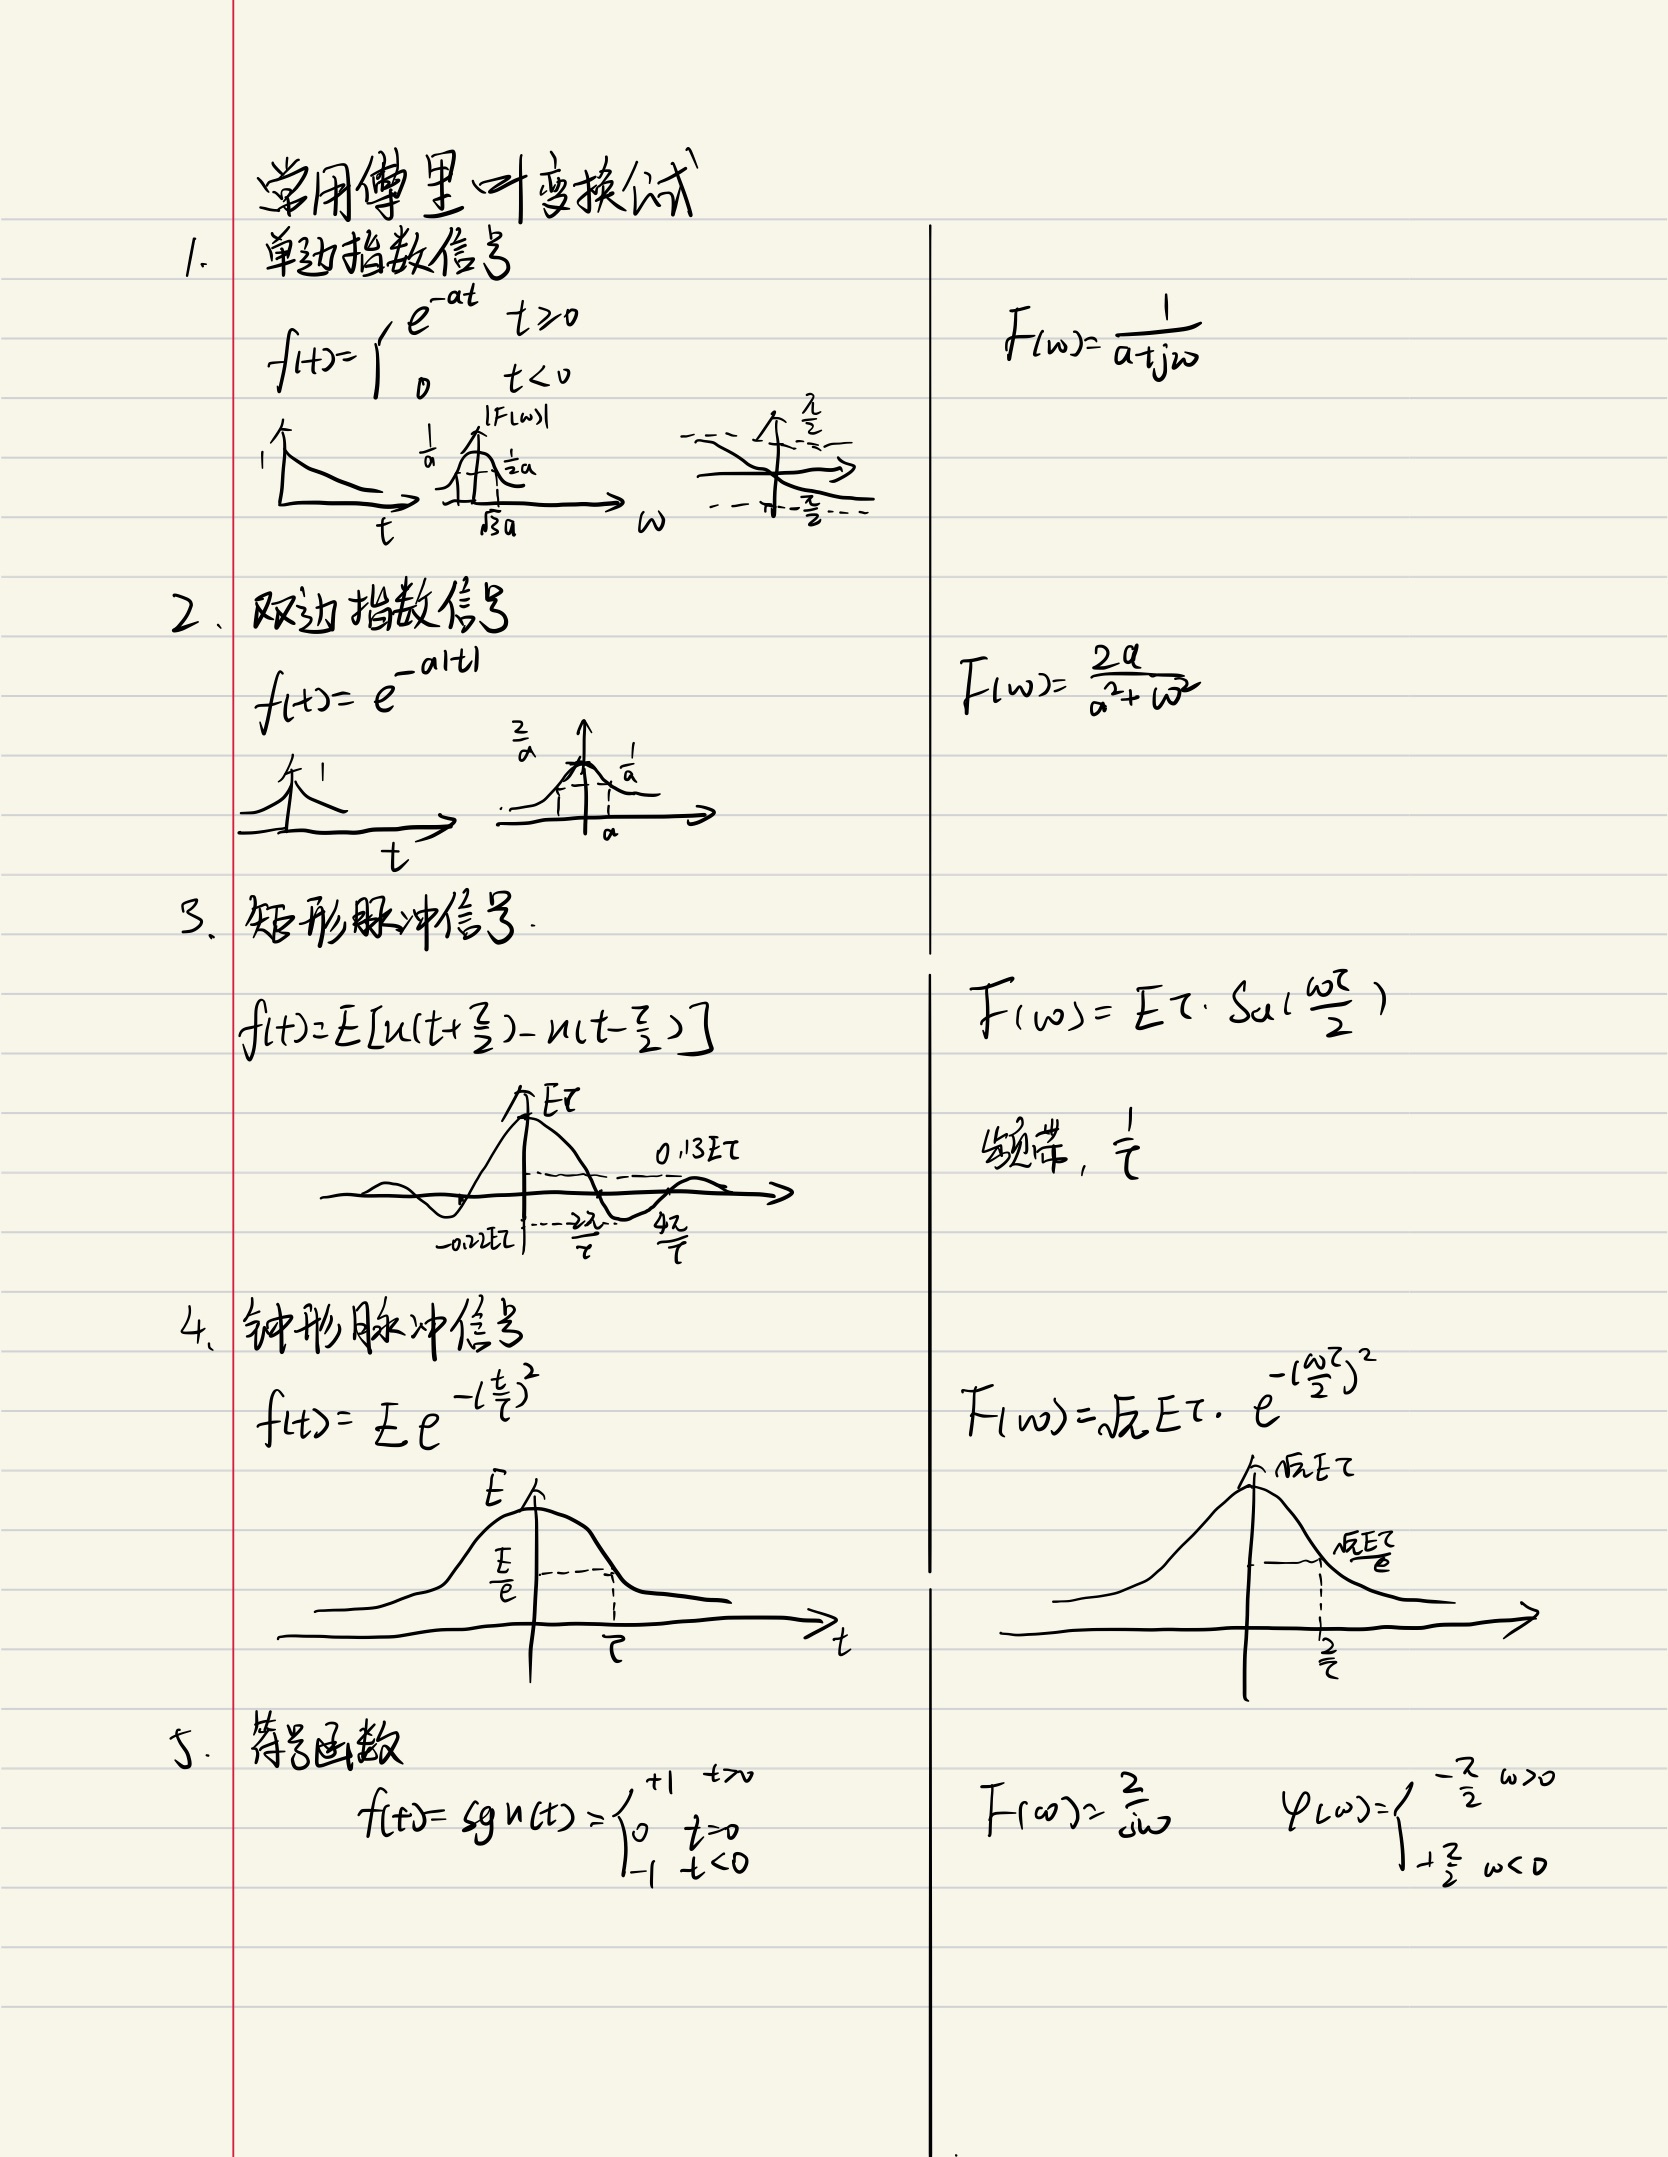 常用傅里叶变换公式
1. 单边指数信号
f(t)={ e^{-at} t≥0
0 t<0
F(ω)=1/(a+jω)
1 t
1/a |F(ω)| 1/2a √3a ω
π/2 -π/2
2. 双边指数信号
f(t)=e^{-a|t|}
F(ω)=2a/(a²+ω²)
1 t
2/a 1/a a
3. 矩形脉冲信号.
f(t)=E[u(t+τ/2)-u(t-τ/2)]
F(ω)=Eτ·Sa(ωτ/2)
Eτ
0.13Eτ
-0.22Eτ 2π/τ 4π/τ
频带, 1/τ
4. 钟形脉冲信号
f(t)=E e^{-(t/τ)²}
F(ω)=√π Eτ· e^{-(ωτ/2)²}
E
E/e
τ t
√π Eτ
√π Eτ/e
2/τ
5. 符号函数
f(t)=sgn(t)={ +1 t>0
0 t=0
-1 t<0
F(ω)=2/jω
φ(ω)={ -π/2 ω>0
+π/2 ω<0